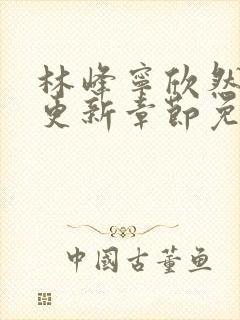 林峰宁欣然
更新章节免
中国古董鱼